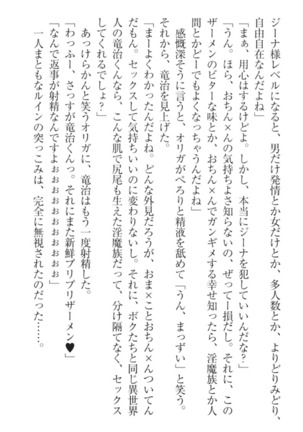 ジーナ様レベルになると、男だけ発情とか女だけとか、多人数とか、よりどりみどり、
自由自在なんだよね」
「まぁ、用心はするけどよ。しかし、本当にジーナを犯していいんだな？」
「うん。ほら、おち×んの気持ちよさ知らないの、ぜってー損だし。それに、この
ザーメンのビターな味とか、おち×んでガンギメする幸せ知ったら、淫魔族とか人
間とかどーでもよくなっちゃうんだよね」
感慨深そうに言うと、オリガがぺろりと精液を舐めて「うん、まっずい」と笑う。
それから、竜治を見上げた。
「まーよくわかったんだよね。どんな外見だろうが、おま×ことおちん×んついてん
だもん。セックスして気持ちいいのに変わんない。それに、ボクたちと同じ異世界
人の竜治くんなら、こんな肌で尻尾も生えた淫魔族だって、分け隔てなく、セックス
してくれるでしょ？」
あっけらかんと笑うオリガに、竜治はもう一度射精した。
「わっふー、さっすが竜治くんっ。それにまた新鮮プリプリザーメン♥」
「なんで返事が射精なんですよぉぉぉぉぉぉぉぉ」
一人まともなルインの突っこみは、完全に無視されたのだった……。